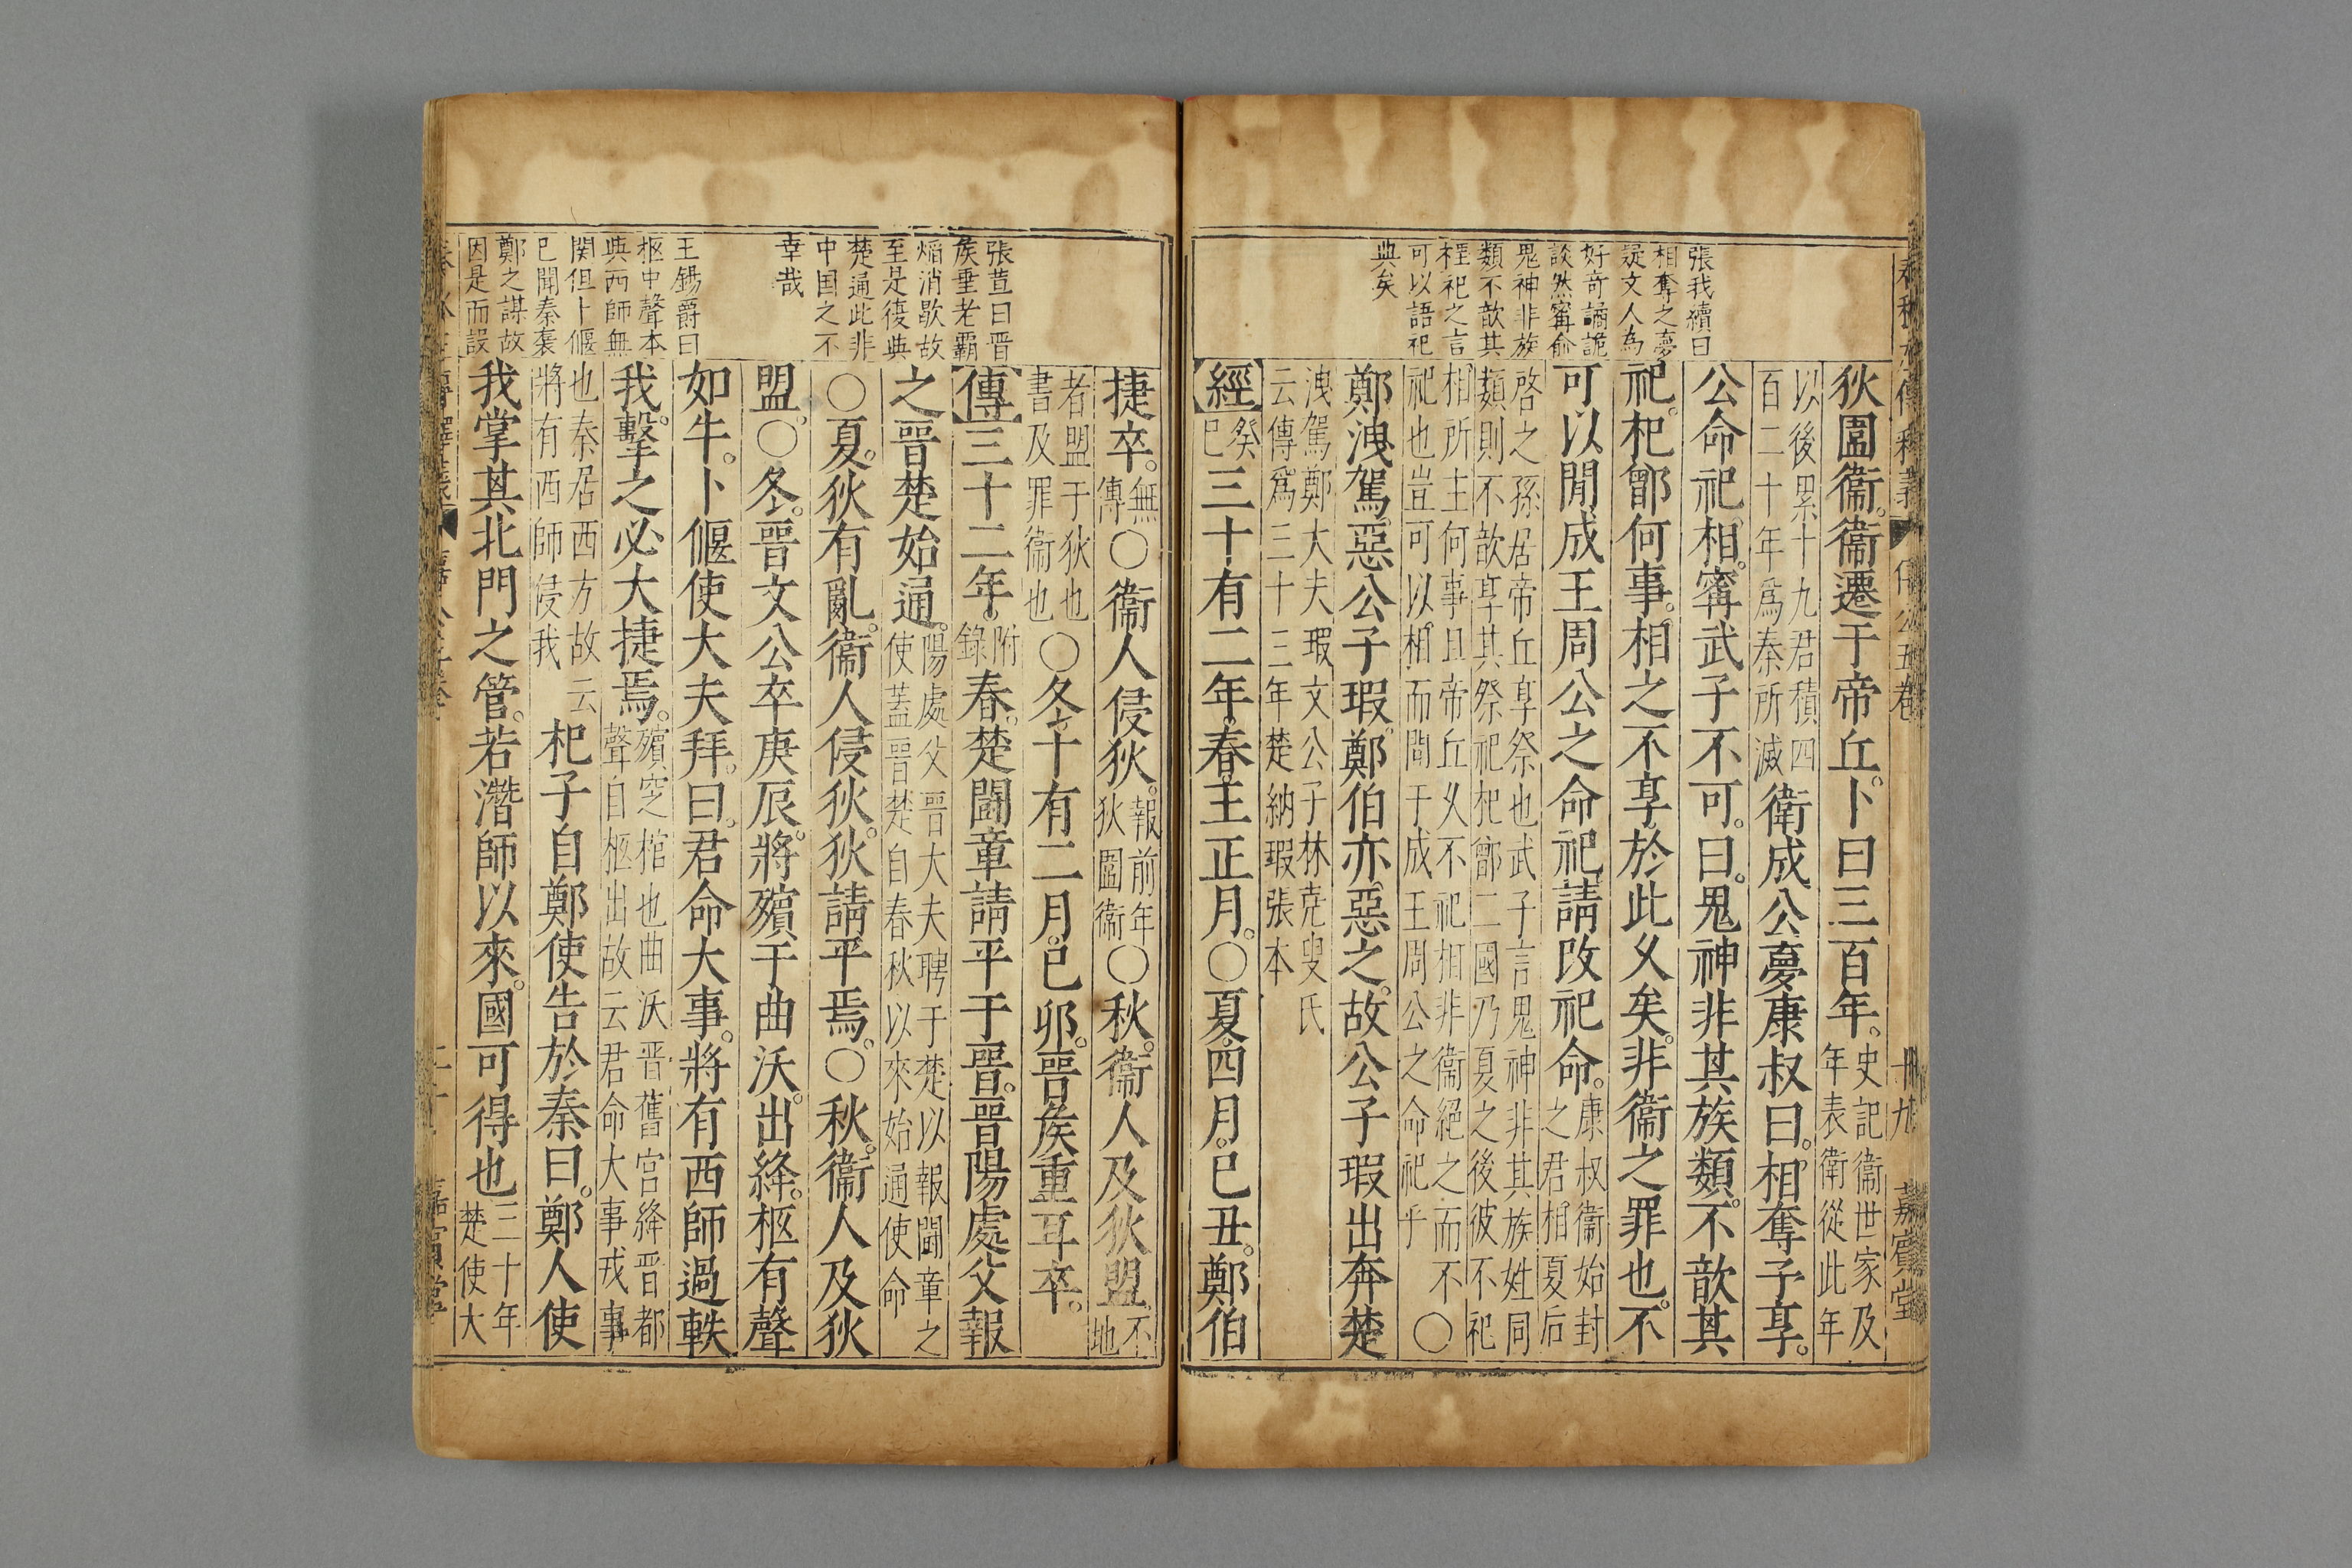 張我續曰
相奪之夢
疑文人為
好奇譎詭
談然甯俞
鬼神非族
類不歆其
祀之言
可以語祀
典矣
狄圍衞衞遷于帝丘卜曰三百年史記衞世家及年表衛從此年
以後累十九君積四百二十年爲秦所滅衛成公夢康叔曰相奪予享
公命祀相甯武子不可曰鬼神非其族類不歆其
祀杞鄫何事相之不享於此乆矣非衞之罪也不
可以閒成王周公之命祀請改祀命康叔衞始封之君相夏后
啓之孫居帝丘享祭也武子言鬼神非其族姓同類則不歆享其祭祀杞鄫二國乃夏之後彼不祀
相所主何事且帝丘乆不祀相非衞絕之而不祀也豈可以相而間于成王周公之命祀乎〇
鄭洩駕惡公子瑕鄭伯亦惡之故公子瑕出奔楚
洩駕鄭大夫瑕文公子林克叟氏云傳爲三十三年楚納瑕張本
經癸巳三十有二年春王正月〇夏四月已丑鄭伯
張萱曰晉
矦重老霸
焰消歇故
至是復與
楚通此非
中国之不
幸哉
王錫爵曰
柩中聲本
與西師無
関但卜偃
已聞秦襲
鄭之謀故
因是而設
捷卒無傳〇衞人侵狄報前年狄圍衞〇秋衞人及狄盟不地
者盟于狄也書及罪衞也〇冬十有二月已卯晉矦重耳卒
傳三十二年附錄春楚鬬章請平于晉晉陽處父報
之晉楚始通陽處父晉大夫聘于楚以報鬬章之使蓋晉楚自春秋以來始通使命
〇夏狄有亂衞人侵狄狄請平焉〇秋衞人及狄
盟〇冬晉文公卒庚辰將殯于曲沃出絳柩有聲
如牛卜偃使大夫拜曰君命大事將有西師過軼
我擊之必大捷焉殯窆棺也曲沃晋舊宫絳晋都聲自柩出故云君命大事戎事
也秦居西方故云將有西師侵我 杞子自鄭使告於秦曰鄭人使
我掌其北門之管若潛師以來國可得也三十年楚使大